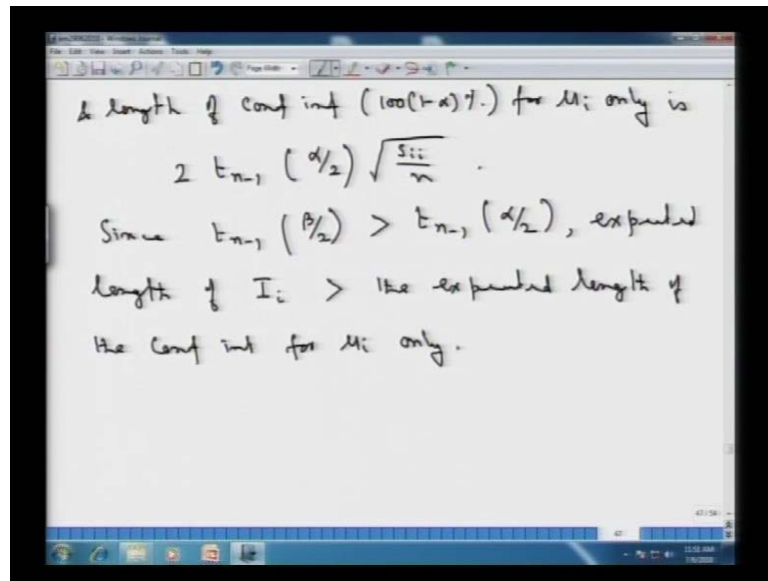 File Edit View Insert Actions Tools Help
Page Width
& length of conf int (100(1-α)%) for μi only is
2 t_{n-1} (α/2) √(s_{ii}/n) .
Since t_{n-1} (β/2) > t_{n-1} (α/2), expected
length of I_i > the expected length of
the Conf int for μi only.
47/58
11:51 AM
7/6/2010